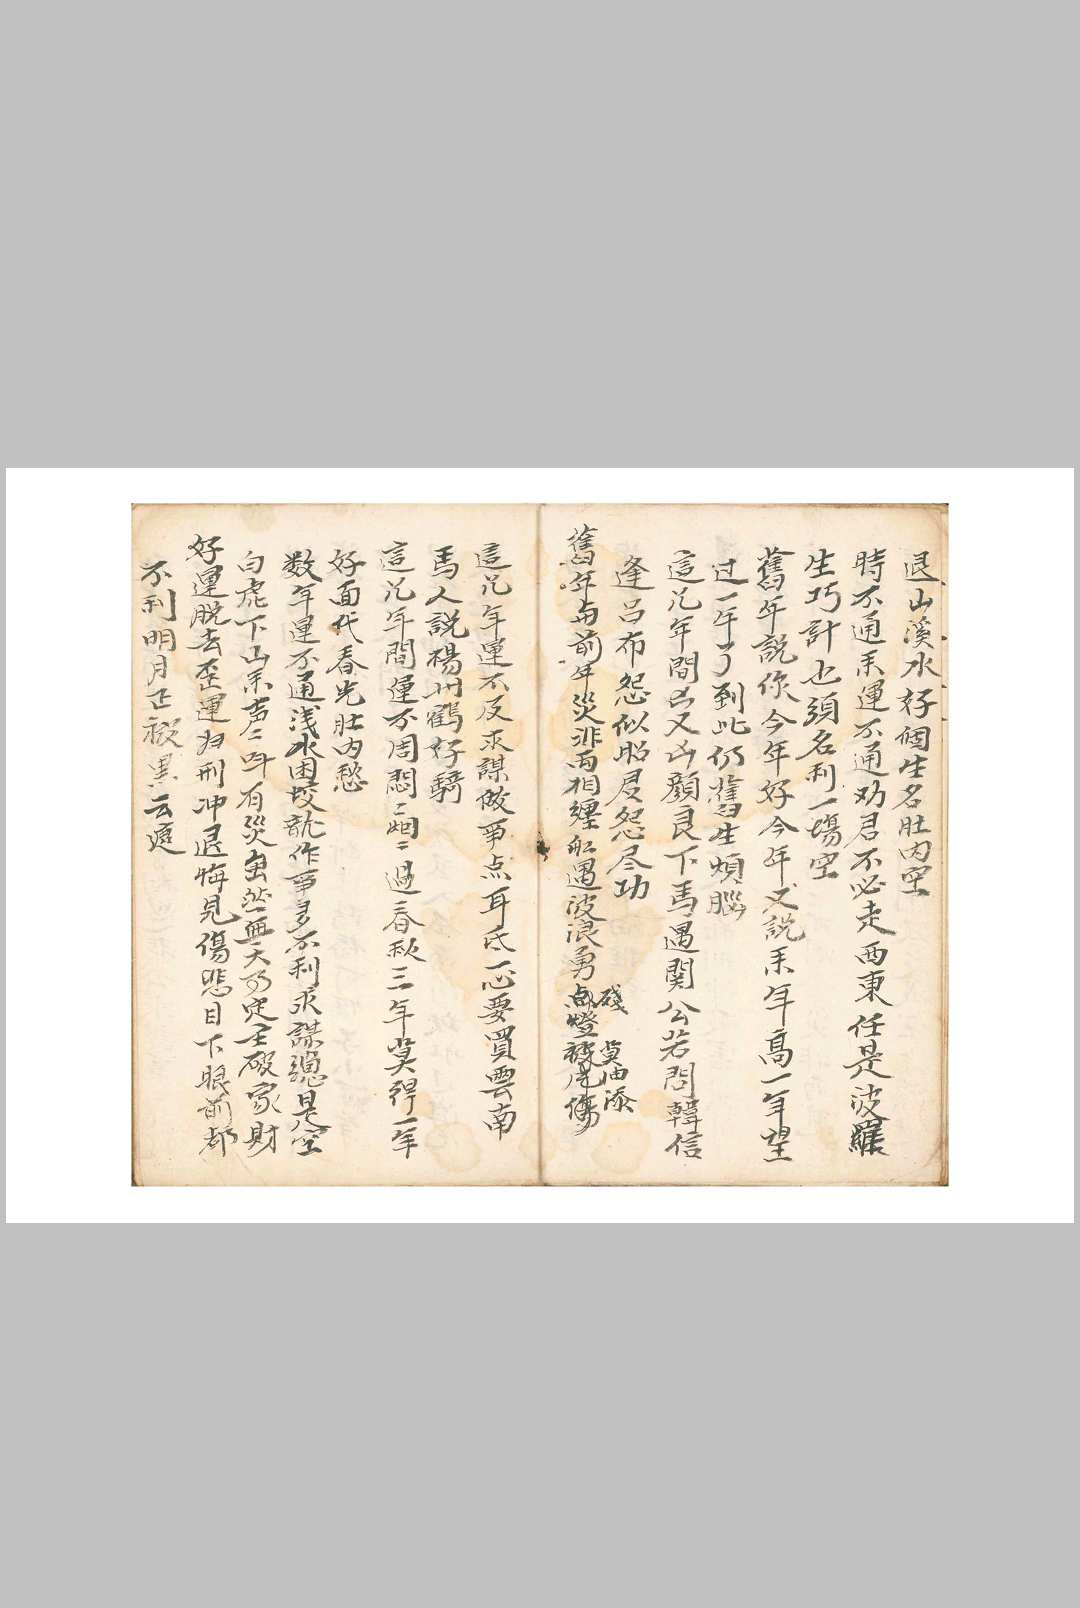 退山溪水好個生名肚内空
時不通来運不通劝君不必走西東任是波羅
生巧計也須名利一場空
舊年説你今年好今年又説来年高一年望
过一年了到此仍舊生煩腦
這几年間凶又凶顔良下馬遇関公若問韓信
逢吕布怨似昭君怨尽功
舊年与前年災非両相纏船遇波浪勇点燈被風傷
殘 莫油添
這几年運不及求謀做事点耳氏一心要買雲南
馬人説楊州鶴好騎
這几年間運不周悶〻烟〻過春秋三年莫得一年
好面代春光肚内愁
数年運不通浅水困蛟龍作事多不利求謀總是空
白虎下山来声〻叫有災虽然無大乃定主破家財
好運脱去歪運归刑冲退悔見傷悲目下眼前都
不利明月正被黑云遮